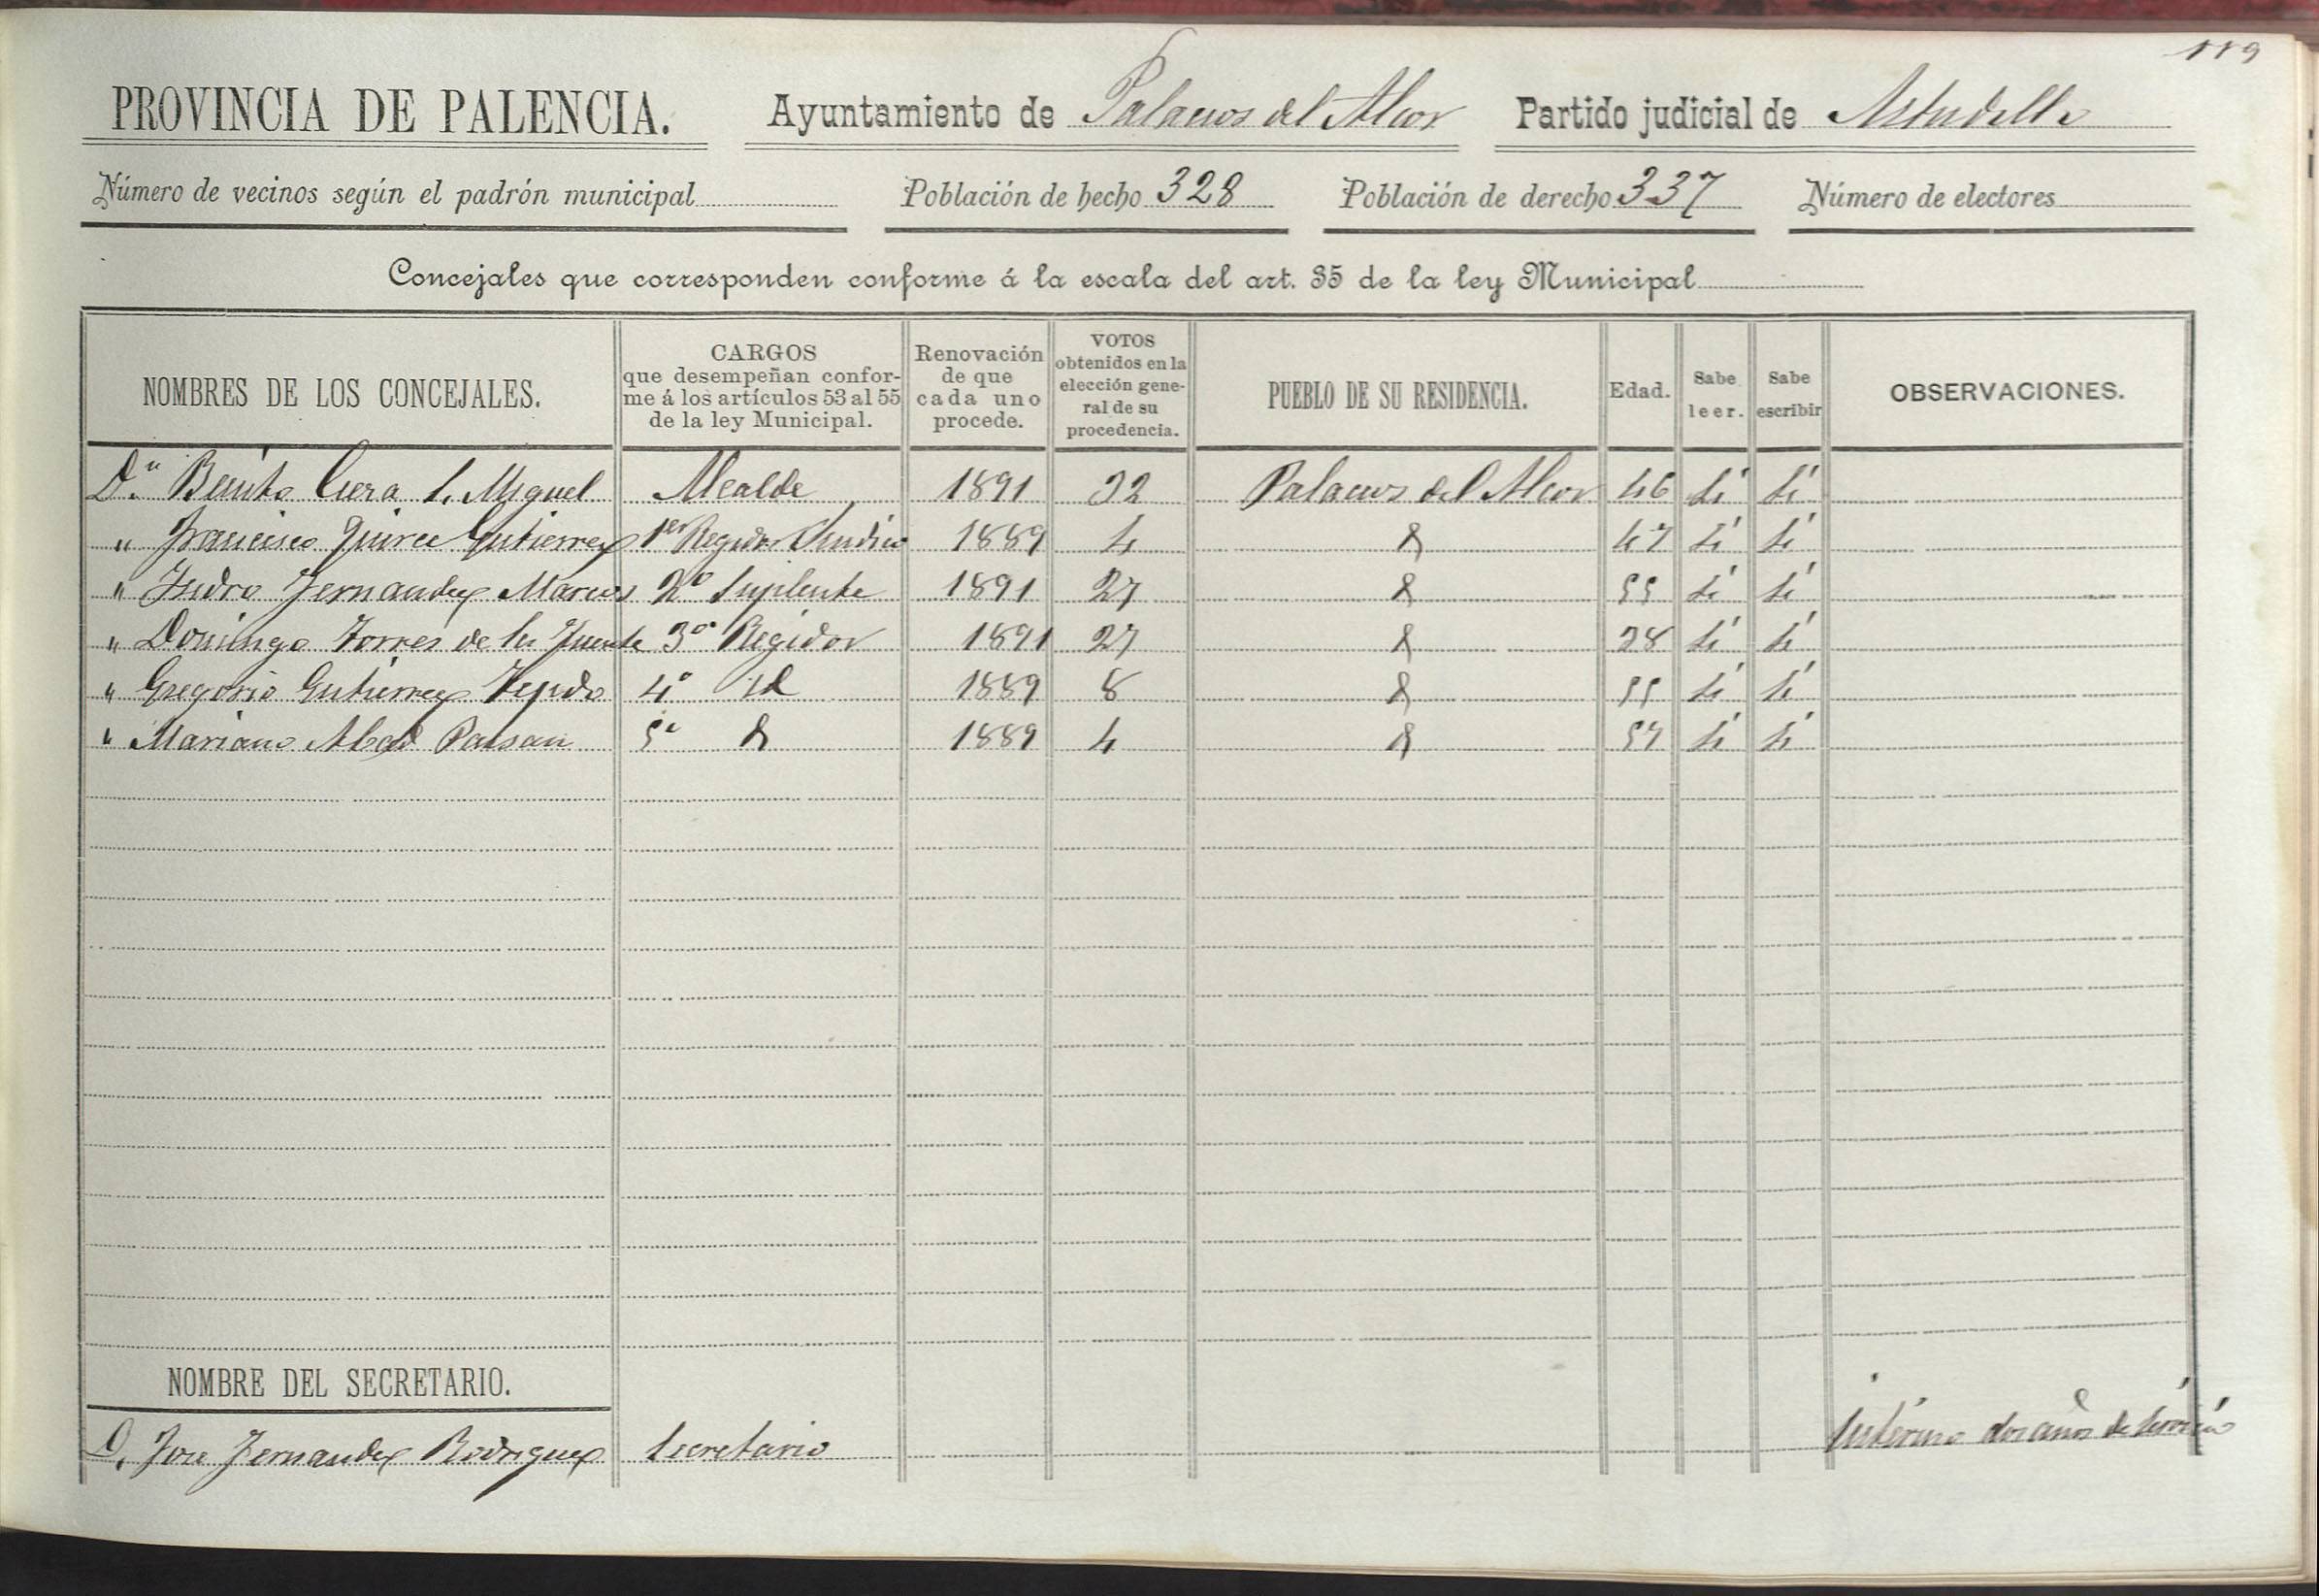 119
PROVINCIA DE PALENCIA. Ayuntamiento de Palacios del Alcor Partido judicial de Astudillo
Número de vecinos según el padrón municipal Población de hecho 328 Población de derecho 337 Número de electores
Concejales que corresponden conforme á la escala del art. 35 de la ley Municipal
NOMBRES DE LOS CONCEJALES. CARGOS que desempeñan confor-me á los artículos 53 al 55 de la ley Municipal. Renovación de que cada uno procede. VOTOS obtenidos en la elección gene-ral de su procedencia. PUEBLO DE SU RESIDENCIA. Edad. Sabe leer. Sabe escribir OBSERVACIONES.
Dn. Benito Cuera S. Miguel Alcalde 1891 32 Palacios del Alcor 46 Si Si
" Francisco Quirce Gutierrez 1er Regidor Sindico 1889 4 & 47 Si Si
" Isidro Fernandez Marcos 2º Suplente 1891 27 & 55 Si Si
" Domingo Torres de la Fuente 3º Regidor 1891 27 & 38 Si Si
" Gregorio Gutierrez Tejido 4º id 1889 8 & 55 Si Si
" Mariano Abad 5º & 1889 4 & 57 Si Si
NOMBRE DEL SECRETARIO.
D. Jose Fernandez Rodriguez Secretario Interino dos años de servicio